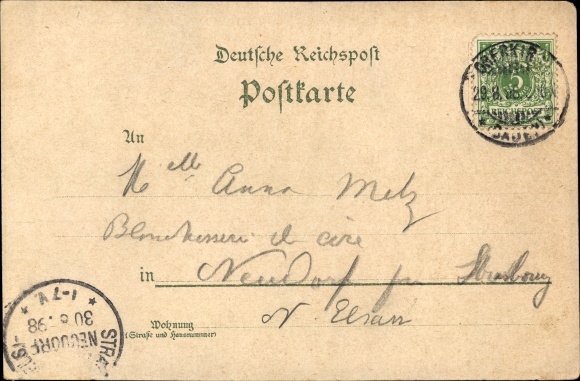 Deutsche Reichspost
Postkarte
OBERKIRCH
29.8.98
(BADEN)
5
An
Mlle Anna Metz
à cire
in Neudorf Strasbourg
Elsass
Wohnung
(Straße und Hausnummer)
1-7V.
30.8.98
NEUDORF
STRA